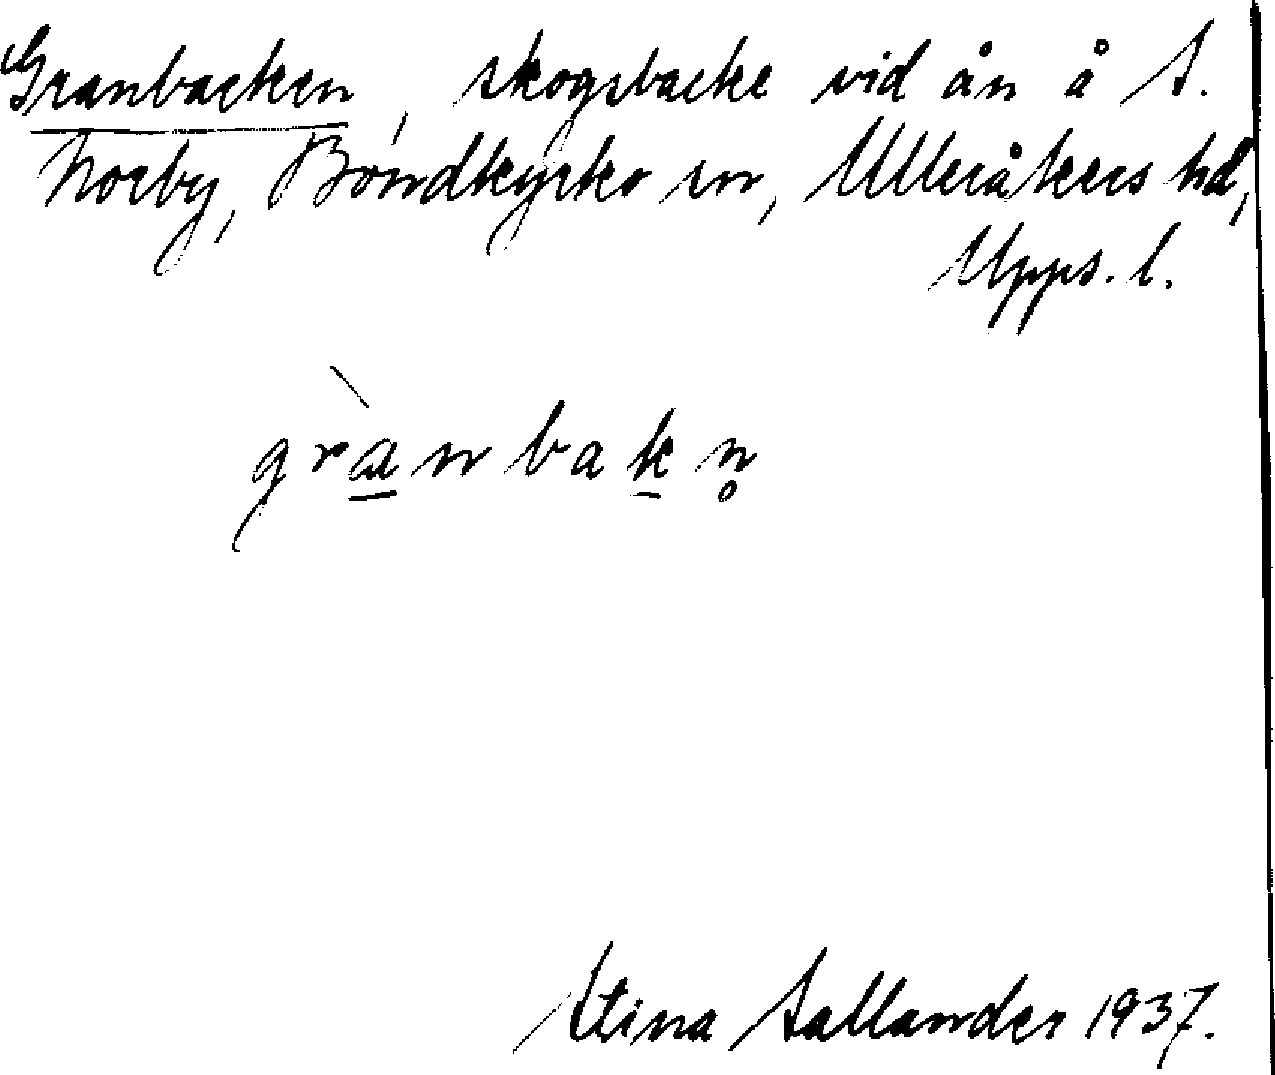 Granbacken, skogsbacke vid ån å S.
Norby, Bondkyrko sn, Ulleråkers hd,
Upps. l.
grànbakn̥
Stina Sallander 1937.